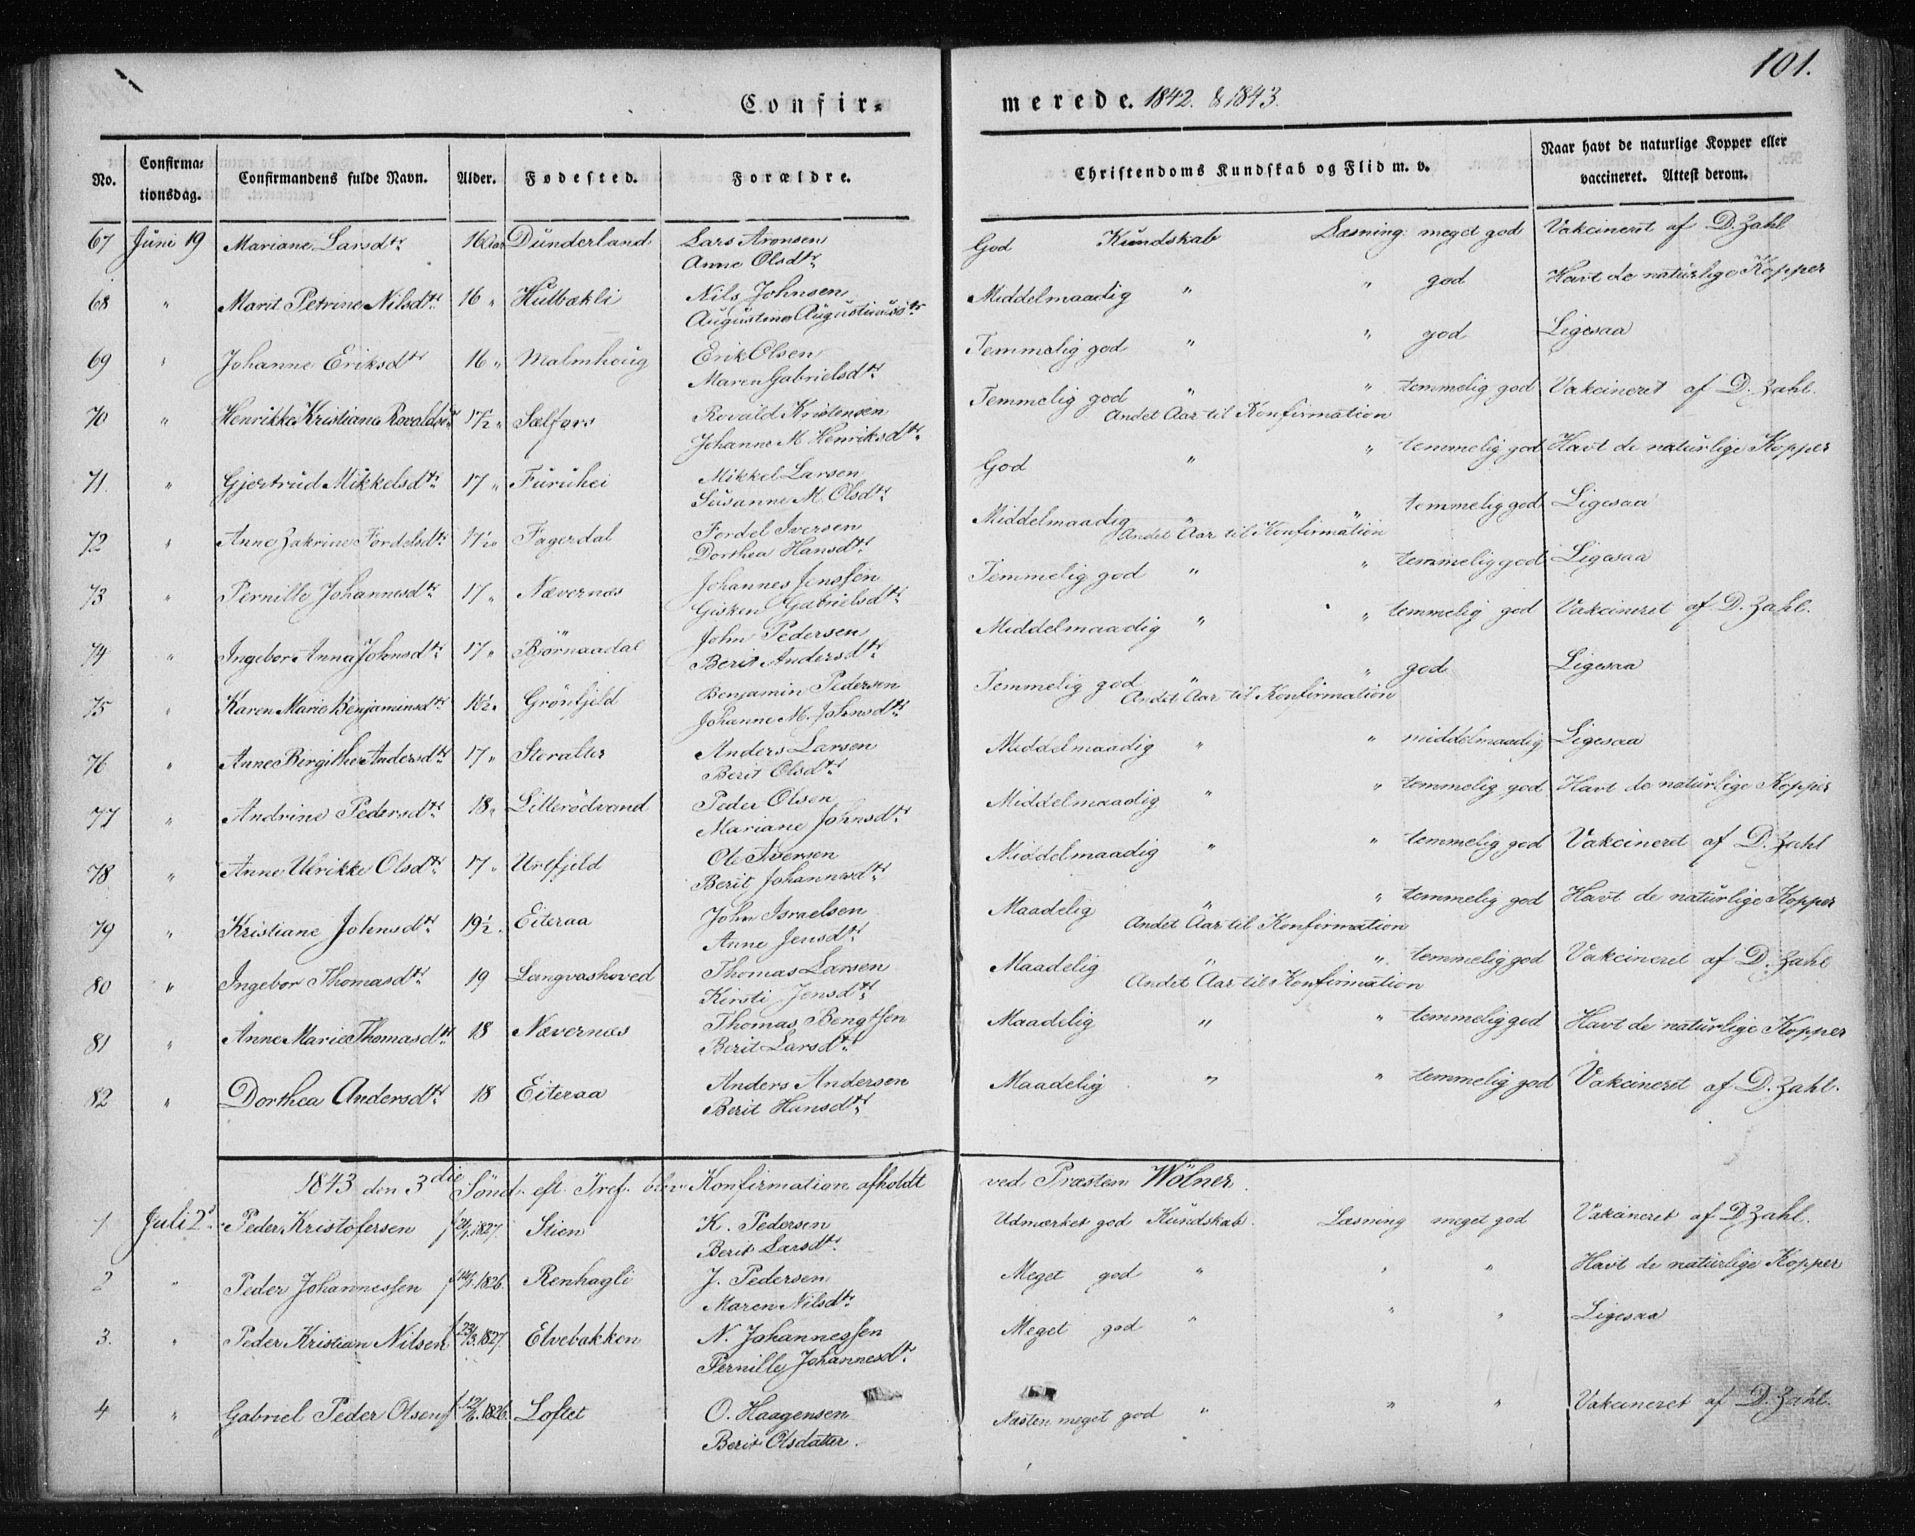 101.
Confir-merede. 1842. & 1843.
No. Confirmationsdag. Confirmandens fulde Navn. Alder. Fødested. Forældre. Christendoms Kundskab og Flid m. v. Naar havt de naturlige Kopper eller vaccineret. Attest derom.
67 Juni 19 Mariane Larsdtr 16 Aar Dunderland Lars Aronsen God Kundskab Læsning meget god Vakcineret af D. Zahl
Anne Olsdtr
68 " Marit Petrine Nilsdtr 16 " Hulbækli Nils Johnsen Middelmaadig " " god Havt de naturlige Kopper
Augustine Augustinusdtr
69 " Johanne Eriksdtr 16 " Malmhoug Erik Olsen Temmelig god " " god Ligesaa
Maren Gabrielsdtr
70 " Henrikke Kristiane Rovaldsdtr 17½ " Selfors Rovald Kristensen Temmelig god " " temmelig god Vakcineret af D. Zahl.
Johanne M. Henriksdtr Andet Aar til Konfirmation
71. " Gjertrud Mikkelsdtr 17 " Furuhei Mikkel Larsen God " " temmelig god Havt de naturlige Kopper
Susanne M. Olsdtr
72 " Anne Zakrine Fordelsdtr 17½ Fagerdal Fordel Iversen Middelmaadig " " temmelig god Ligesaa
Dorthea Hansdtr Andet Aar til Konfirmation
73 " Pernille Johannesdtr 17 " Nævernæs Johannes Jenssen Temmelig god " " temmelig god Ligesaa
Gisken Gabrielsdtr
74 " Ingebor Anna Johnsdtr 17 " Bjørnaadal John Pedersen Middelmaadig " " temmelig god Vakcineret af D. Zahl.
Berit Andersdtr
75 " Karen Marie Benjaminsdtr 18½ " Grönfjeld Benjamin Pedersen Temmelig god " " god Ligesaa
Johanne M. Johnsdtr Andet Aar til Konfirmation
76 " Anne Birgithe Andersdtr 17 " Storalter Anders Larsen Middelmaadig " " middelmaadig Ligesaa
Berit Olsdtr
77 " Andrine Pedersdtr 18 " Litlerödvand Peder Olsen Middelmaadig " " temmelig god Havt de naturlige Kopper
Mariane Johnsdtr
78 " Anne Ulrikke Olsdtr 17 " Urtfjeld Ole Iversen Middelmaadig " " temmelig god Vakcineret af D. Zahl
Berit Johannesdtr
79 " Kristiane Johnsdtr 19½ . Eiteraa John Israelsen Maadelig " " temmelig god Havt de naturlige Kopper
Anne Jensdtr Andet Aar til Konfirmation
80 " Ingebor Thomasdtr 19 Langvashoved Thomas Larsen Maadelig " " temmelig god Vakcineret af D. Zahl
Kirsti Jonsdtr Andet Aar til Konfirmation
81 " Anne Marie Thomasdtr 18 Nævernæs Thomas Bengtsen Maadelig " " temmelig god Havt de naturlige Kopper
Berit Larsdtr
82 " Dorthea Andersdtr 18 Eiteraa Anders Andersen Maadelig " " temmelig god Vakcineret af D. Zahl.
Berit Hansdtr
1843 den 3die Sönd. eft. Tref. blev Konfirmation afholdt ved Præsten Wölner.
1 Juli 2 Peder Kristofersen 1827. Stien K. Pedersen Udmærket god Kundskab. Læsning meget god Vakcineret af D Zahl.
Berit Larsdtr
2 " Peder Johannessen 1826. Renhagli J. Pedersen Meget god " " " Havt de naturlige Kopper
Maren Nilsdtr
3. " Peder Kristian Nilsen 23/3.1827. Elvebakken N. Johannessen Meget god " " " Ligesaa
Pernille Johannesdtr
4 " Gabriel Peder Olsen 1826. Loftet O. Haagensen Næsten meget god " " " Vakcineret af D. Zahl.
Berit Olsdatter.